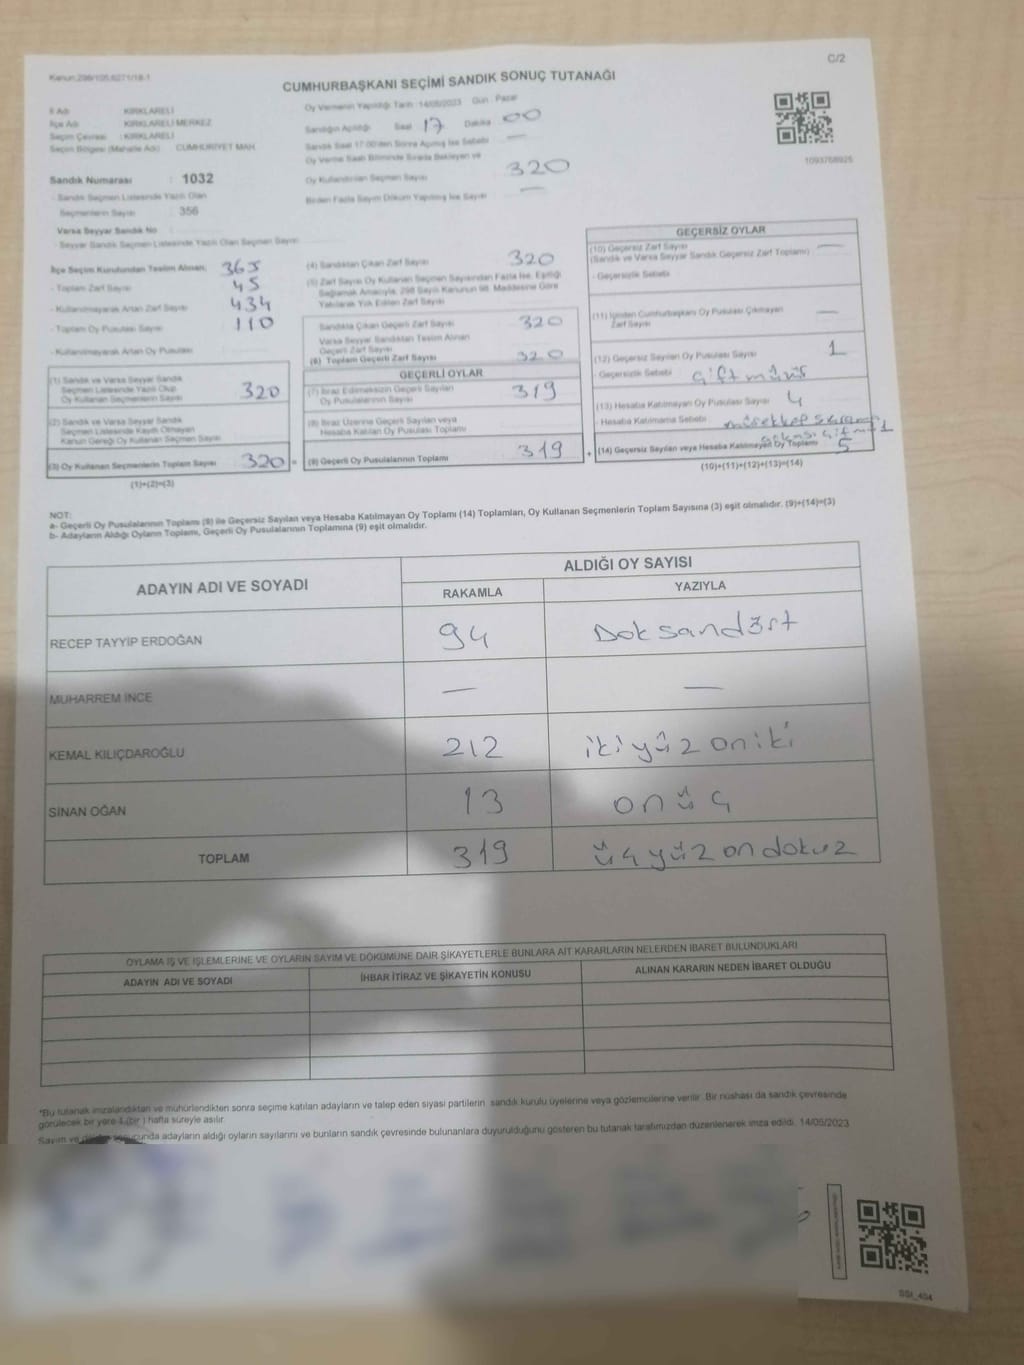 C/2
Kanun:298/105,6271/18-1
CUMHURBAŞKANI SEÇİMİ SANDIK SONUÇ TUTANAĞI
İl Adı : KIRKLARELİ
İlçe Adı : KIRKLARELİ MERKEZ
Seçim Çevresi : KIRKLARELİ
Seçim Bölgesi (Mahalle Adı) CUMHURİYET MAH.
Sandık Numarası : 1032
- Sandık Seçmen Listesinde Yazılı Olan
Seçmenlerin Sayısı : 356
Varsa Seyyar Sandık No :
- Seyyar Sandık Seçmen Listesinde Yazılı Olan Seçmen Sayısı
Oy Vermenin Yapıldığı Tarih : 14/05/2023 Gün : Pazar
Sandığın Açıldığı Saat 17 Dakika 00
Sandık Saat 17:00'den Sonra Açılmış İse Sebebi —
Oy Verme Saati Bitiminde Sırada Bekleyen ve
Oy Kullandırılan Seçmen Sayısı 320
Birden Fazla Sayım Döküm Yapılmış İse Sayısı —
1093768925
İlçe Seçim Kurulundan Teslim Alınan; 365
- Toplam Zarf Sayısı 45
- Kullanılmayarak Artan Zarf Sayısı 434
- Toplam Oy Pusulası Sayısı 110
- Kullanılmayarak Artan Oy Pusulası
(1) Sandık ve Varsa Seyyar Sandık
Seçmen Listesinde Yazılı Olup
Oy Kullanan Seçmenlerin Sayısı 320
(2) Sandık ve Varsa Seyyar Sandık
Seçmen Listesinde Kaydı Olmayan
Kanun Gereği Oy Kullanan Seçmen Sayısı
(3) Oy Kullanan Seçmenlerin Toplam Sayısı 320 =
(1)+(2)=(3)
(4) Sandıktan Çıkan Zarf Sayısı 320
(5) Zarf Sayısı Oy Kullanan Seçmen Sayısından Fazla İse, Eşitliği
Sağlamak Amacıyla, 298 Sayılı Kanunun 98. Maddesine Göre
Yakılarak Yok Edilen Zarf Sayısı
Sandıkta Çıkan Geçerli Zarf Sayısı 320
Varsa Seyyar Sandıktan Teslim Alınan
Geçerli Zarf Sayısı
(6) Toplam Geçerli Zarf Sayısı 320
GEÇERLİ OYLAR
(7) İtiraz Edilmeksizin Geçerli Sayılan
Oy Pusulalarının Sayısı 319
(8) İtiraz Üzerine Geçerli Sayılan veya
Hesaba Katılan Oy Pusulası Toplamı
(9) Geçerli Oy Pusulalarının Toplamı 319 +
GEÇERSİZ OYLAR
(10) Geçersiz Zarf Sayısı —
(Sandık ve Varsa Seyyar Sandık Geçersiz Zarf Toplamı)
- Geçersizlik Sebebi
(11) İçinden Cumhurbaşkanı Oy Pusulası Çıkmayan —
Zarf Sayısı
(12) Geçersiz Sayılan Oy Pusulası Sayısı 1
- Geçersizlik Sebebi çift mühür
(13) Hesaba Katılmayan Oy Pusulası Sayısı 4
- Hesaba Katılmama Sebebi
(14) Geçersiz Sayılan veya Hesaba Katılmayan Oy Toplamı 5
(10)+(11)+(12)+(13)=(14)
NOT:
a- Geçerli Oy Pusulalarının Toplamı (9) ile Geçersiz Sayılan veya Hesaba Katılmayan Oy Toplamı (14) Toplamları, Oy Kullanan Seçmenlerin Toplam Sayısına (3) eşit olmalıdır. (9)+(14)=(3)
b- Adayların Aldığı Oyların Toplamı, Geçerli Oy Pusulalarının Toplamına (9) eşit olmalıdır.
ADAYIN ADI VE SOYADI ALDIĞI OY SAYISI
RAKAMLA YAZIYLA
RECEP TAYYİP ERDOĞAN 94 Doksandört
MUHARREM İNCE — —
KEMAL KILIÇDAROĞLU 212 ikiyüz oniki
SİNAN OĞAN 13 onüç
TOPLAM 319 üçyüz ondokuz
OYLAMA İŞ VE İŞLEMLERİNE VE OYLARIN SAYIM VE DÖKÜMÜNE DAİR ŞİKAYETLERLE BUNLARA AİT KARARLARIN NELERDEN İBARET BULUNDUKLARI
ADAYIN ADI VE SOYADI İHBAR İTİRAZ VE ŞİKAYETİN KONUSU ALINAN KARARIN NEDEN İBARET OLDUĞU
*Bu tutanak imzalandıktan ve mühürlendikten sonra seçime katılan adayların ve talep eden siyasi partilerin sandık kurulu üyelerine veya gözlemcilerine verilir. Bir nüshası da sandık çevresinde
görülecek bir yere 1 (bir) hafta süreyle asılır.
Sayım ve sonucunda adayların aldığı oyların sayılarını ve bunların sandık çevresinde bulunanlara duyurulduğunu gösteren bu tutanak tarafımızdan düzenlenerek imza edildi. 14/05/2023
SSI_404